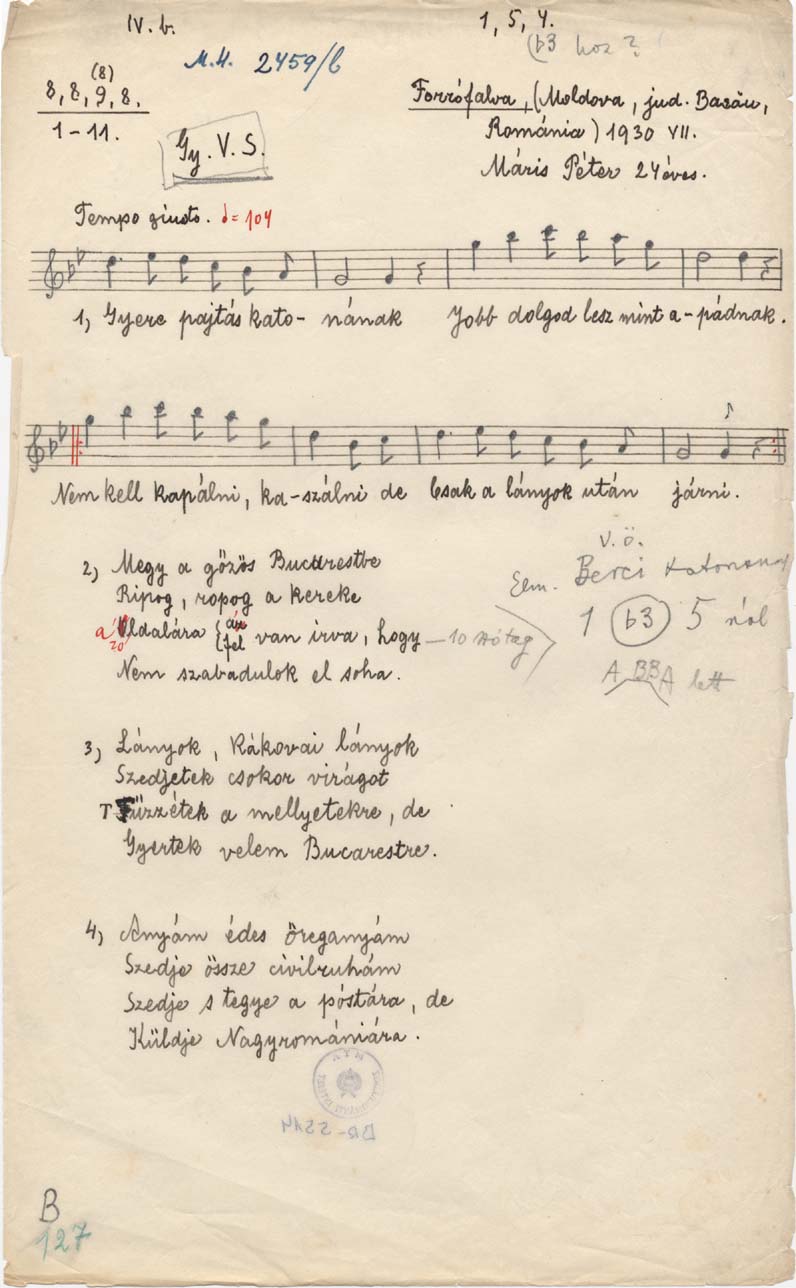 IV. b.
1, 5, 4.
(b3 hoz?
M.H. 2459/b
(8)
8, 8, 9, 8.
1-11.
Gy. V. S.
Forrófalva, (Moldova, jud. Bacău,
Románia) 1930 VII.
Máris Péter 24 éves.
Tempo giusto. ♩=104
1, Gyere pajtás kato- nának Jobb dolgod lesz mint a-pádnak.
Nem kell kapálni, ka-szálni de Csak a lányok után járni.
2) Megy a gőzös Bucurestbe
Ripog, ropog a kereke
Oldalára fel van irva, hogy – 10 szótag
Nem szabadulok el soha.
V.ö.
Elm. Berci
1 (b3) 5 ről
A BB A lett
3) Lányok, Rákovai lányok
Szedjetek csokor virágot
Tűzzétek a mellyetekre, de
Gyertek velem Bucarestre.
4) Anyám édes öreganyám
Szedje össze civilruhám
Szedje s tegye a póstára, de
Küldje Nagyromániára.
BR-5514
B
127